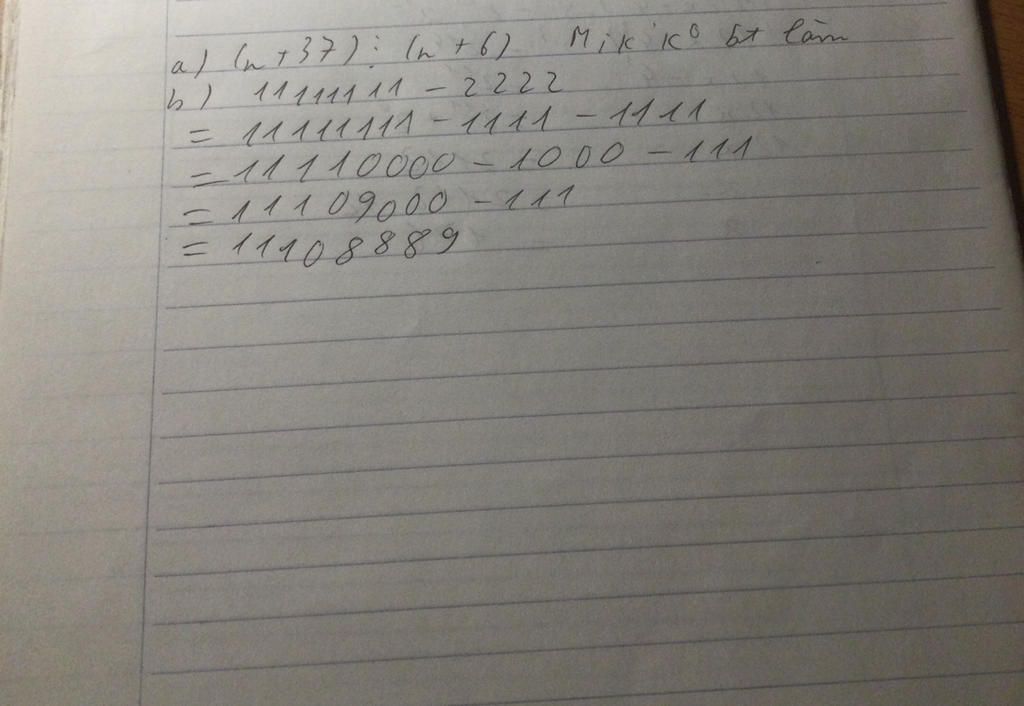 a) (n + 37) ⋮ (n + 6) Mik k⁰ bt làm
b) 11111111 - 2222
= 11111111 - 1111 - 1111
= 11110000 - 1000 - 111
= 11109000 - 111
= 11108889